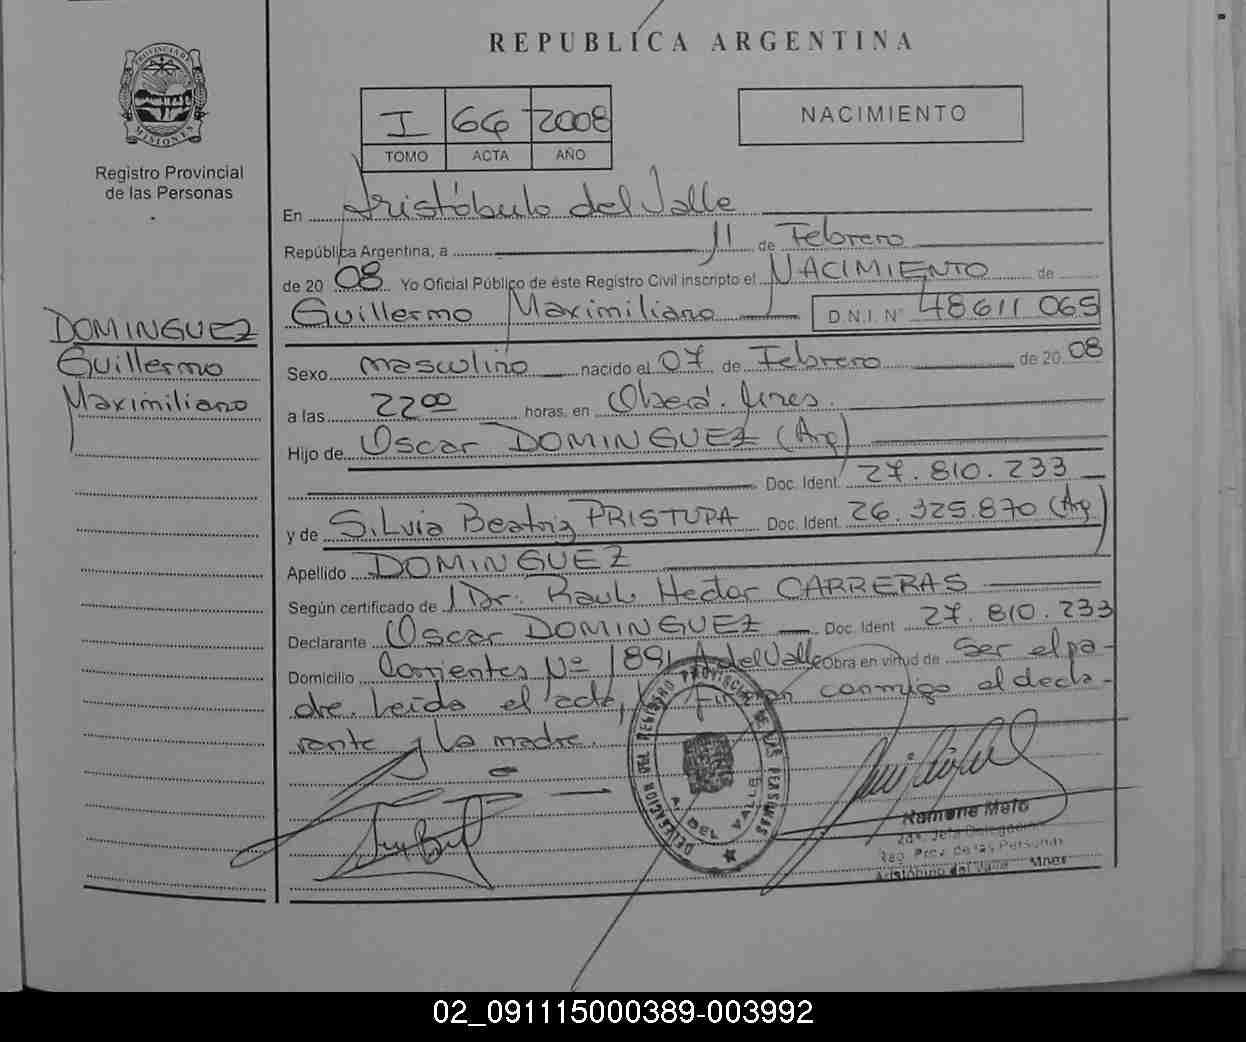 REPUBLICA ARGENTINA
PROVINCIA DE MISIONES
Registro Provincial
de las Personas
I 66 2008
TOMO ACTA AÑO
NACIMIENTO
En Aristóbulo del Valle
República Argentina, a 11 de Febrero
de 20 08 Yo Oficial Público de éste Registro Civil inscripto el NACIMIENTO de
Guillermo Maximiliano D.N.I. N° 48611 065
DOMINGUEZ
Guillermo
Maximiliano
Sexo masculino nacido el 07 de Febrero de 20 08
a las 22 00 horas, en Oberá. Mnes.
Hijo de Oscar DOMINGUEZ (Arg)
Doc. Ident. 27.810.233
y de Silvia Beatriz PRISTUPA Doc. Ident. 26.325.870 (Arg)
Apellido DOMINGUEZ
Según certificado de Dr. Raul Hector CARRERAS
Declarante Oscar DOMINGUEZ Doc. Ident 27.810.233
Domicilio Corrientes Nº 1891 A del Valle Obra en virtud de Ser el pa-
dre. Leida el acta, firman conmigo el decla-
rante y la madre.
DELEGACION DEL REGISTRO PROVINCIAL DE LAS PERSONAS
A. DEL VALLE
Ramona Melo
2da. Jefa Delegación
Reg. Prov. de las Personas
Aristóbulo del Valle - Mnes
02_091115000389-003992